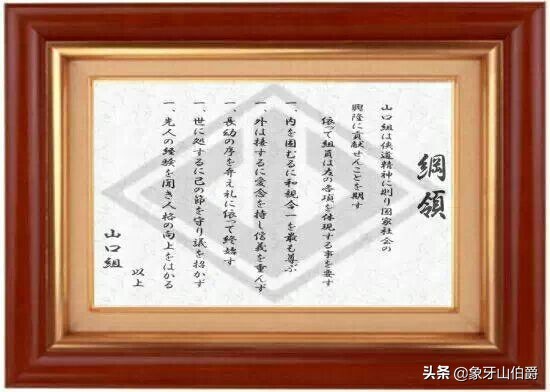 綱領
山口組は侠道精神に則り国家社会の
興隆に貢献せんことを期す
依って組員は左の各項を体現する事を要す
一、内を固むるに和親合一を最も尊ぶ
一、外は接するに愛念を持し信義を重んず
一、長幼の序を弁え礼に依って終始す
一、世に処するに己の節を守り譏を招かず
一、先人の経験を聞き人格の向上をはかる
以上
山口組
头条 @象牙山伯爵